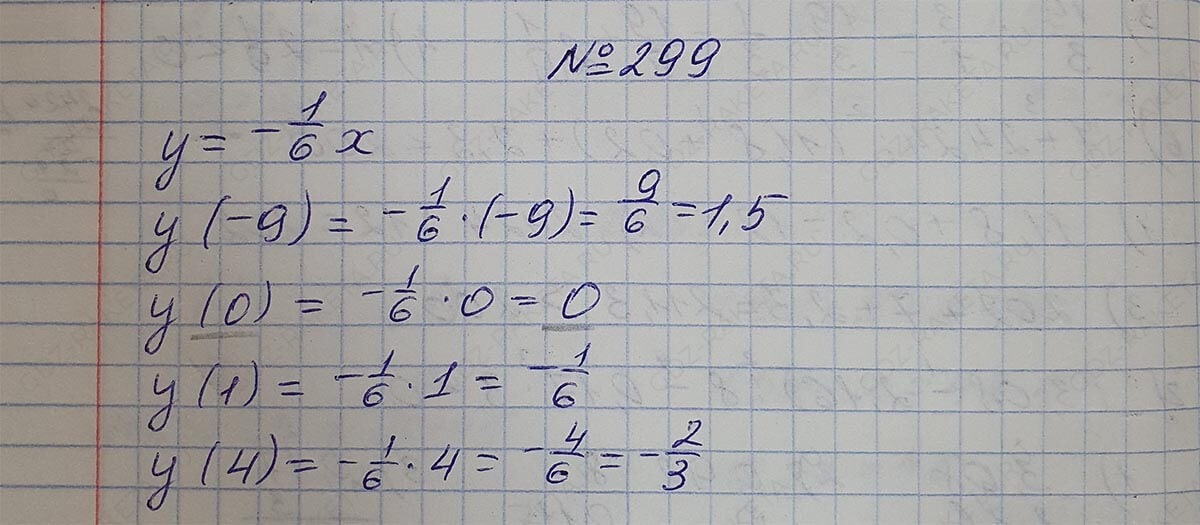 №299
y = -1/6 x
y (-9) = -1/6 · (-9) = 9/6 = 1,5
y (0) = -1/6 · 0 = 0
y (1) = -1/6 · 1 = -1/6
y (4) = -1/6 · 4 = -4/6 = -2/3